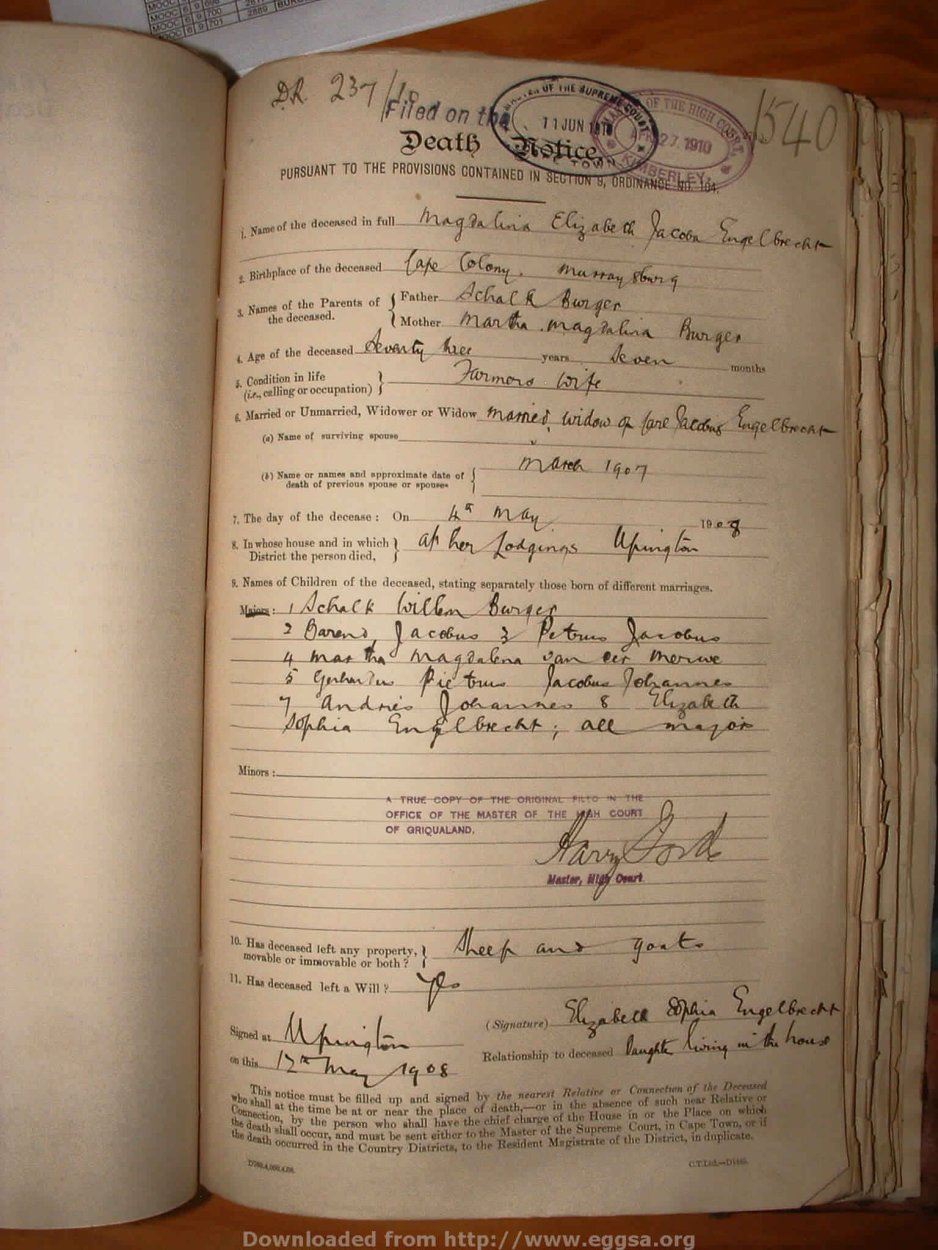 MOOC 6 9 701 2889
DR 237/10
Filed on the
1540
MASTER OF THE SUPREME COURT
11 JUN 1910
TOWN
OF THE HIGH COURT
27. 1910
KIMBERLEY
Death Notice,
PURSUANT TO THE PROVISIONS CONTAINED IN SECTION 9, ORDINANCE NO. 104.
1. Name of the deceased in full Magdalina Elizabeth Jacoba Engelbrecht
2. Birthplace of the deceased Cape Colony. Murraysburg
3. Names of the Parents of the deceased. Father Schalk Burger
Mother Martha Magdalina Burger
4. Age of the deceased Seventy three years Seven months
5. Condition in life (i.e., calling or occupation) Farmers Wife
6. Married or Unmarried, Widower or Widow Married, widow of Carl Jacobus Engelbrecht
(a) Name of surviving spouse
(b) Name or names and approximate date of death of previous spouse or spouses March 1907
7. The day of the decease: On 4th May 1908
8. In whose house and in which District the person died, at her Lodgings Upington
9. Names of Children of the deceased, stating separately those born of different marriages.
Majors: 1 Schalk Willem Burger
2 Barend Jacobus 3 Petrus Jacobus
4 Martha Magdalena van der Merwe
5 Gerhardus Pietrus Jacobus Johannes
7 Andries Johannes 8 Elizabeth
Sophia Engelbrecht; all major
Minors:
A TRUE COPY OF THE ORIGINAL FILED IN THE
OFFICE OF THE MASTER OF THE HIGH COURT
OF GRIQUALAND.
Harry
Master, High Court
10. Has deceased left any property, movable or immovable or both? Sheep and goats
11. Has deceased left a Will? Yes
(Signature) Elizabeth Sophia Engelbrecht
Signed at Upington
Relationship to deceased Daughter living in the house
on this 12th May 1908
This notice must be filled up and signed by the nearest Relative or Connection of the Deceased
who shall at the time be at or near the place of death,—or in the absence of such near Relative or
Connection, by the person who shall have the chief charge of the House in or the Place on which
the death shall occur, and must be sent either to the Master of the Supreme Court, in Cape Town, or if
the death occurred in the Country Districts, to the Resident Magistrate of the District, in duplicate.
Downloaded from http://www.eggsa.org